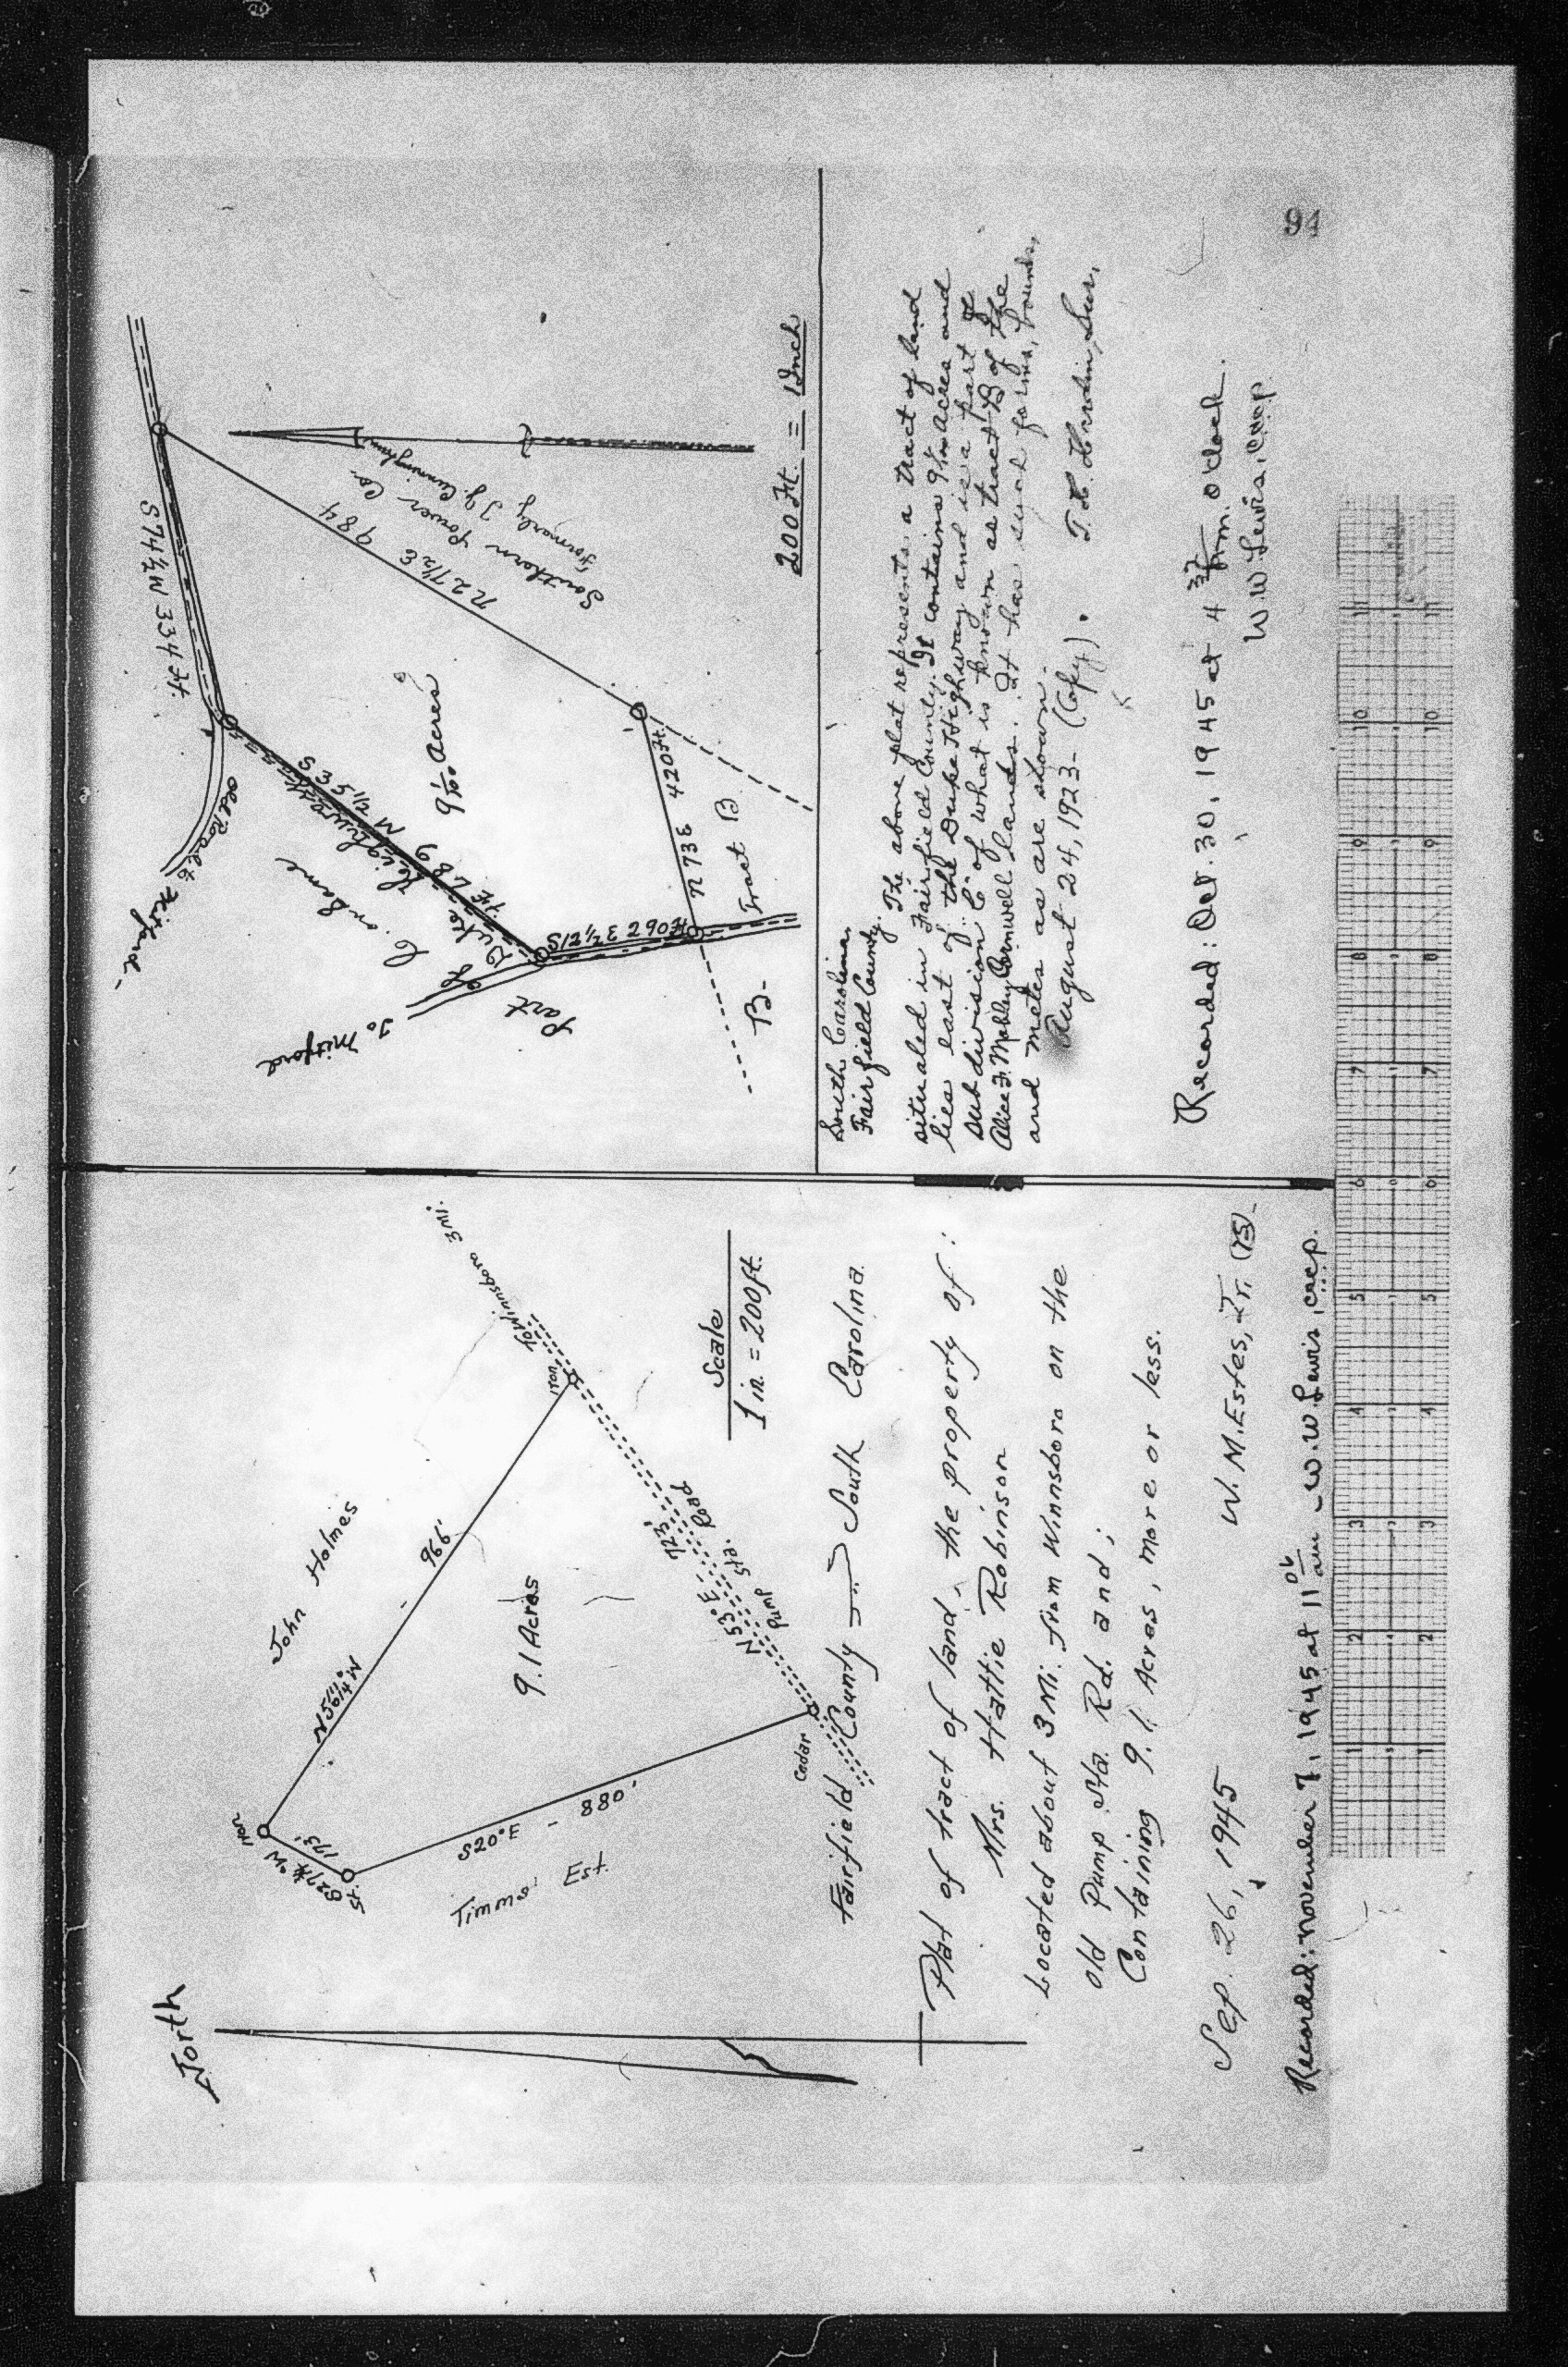 North
John Holmes
iron
N56¼°W
966'
S27¼°W
173'
St.
9.1 Acres
S20°E - 880'
Timms' Est.
Cedar
iron
To Winnsboro 3 Mi.
N 53°E - 723'
Pump Sta. Road
Scale
1 in. = 200 ft.
Fairfield County South Carolina.
Plat of tract of land, the property of:
Mrs. Hattie Robinson
Located about 3 Mi. from Winnsboro on the
old Pump Sta. Rd. and;
Containing 9.1 Acres, more or less.
Sep. 26, 1945 W. M. Estes, Jr.
Recorded: November 7, 1945 at 11 06 am W. W. Lewis, cccp.
S 74½ W 334 ft.
Old Road to Mitford
To Mitford
Part of C. on same
Duke Highway
S12½ E 290 ft
9 1/100 Acres
N 27½ E 984
Southern Power Co.
Formerly J. G. Cunningham
N 73 E 420 ft.
Tract B
B-
200 Ft. = 1 Inch
South Carolina,
Fairfield County.
The above plat represents a tract of land
situated in Fairfield County. It contains 9 1/100 Acres and
lies east of the Duke Highway and is a part of
Subdivision C of what is known as tract B of the
Alice F. Mobley Cornwell lands. It has such forms, bounds,
and metes as are shown.
August 24, 1923- (Copy). Sur.
Recorded: Oct. 30, 1945 at 4 37 P.m. o'clock.
W. W. Lewis, cccp.
94